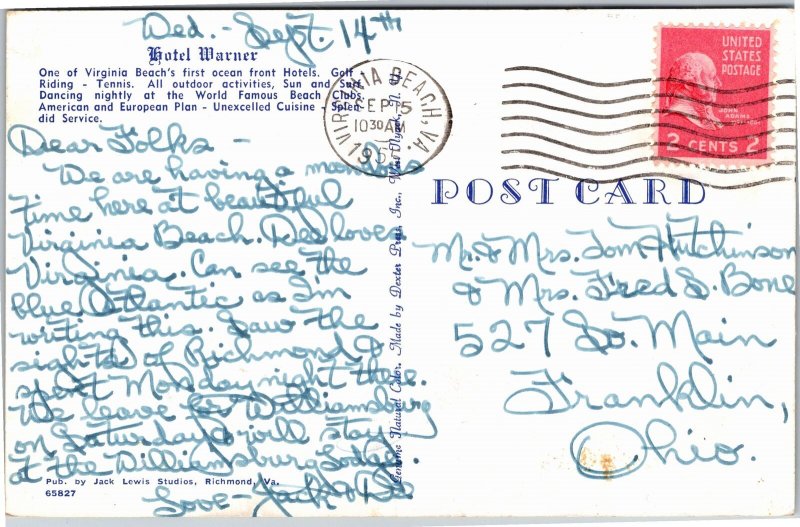 Wed. - Sept. 14th
Hotel Warner
One of Virginia Beach's first ocean front Hotels. Golf -
Riding - Tennis. All outdoor activities, Sun and Surf.
Dancing nightly at the World Famous Beach Clubs.
American and European Plan - Unexcelled Cuisine - Splen-
did Service.
Dear Folks -
We are having a
time here at beautiful
Virginia Beach. Dee loves
Virginia. Can see the
blue Atlantic as I'm
writing this. Saw the
sights of Richmond &
spent Monday night there.
We leave for Williamsburg
on Saturday & will stay
at the Williamsburg Lodge.
Love - Jack & Dee
Pub. by Jack Lewis Studios, Richmond, Va.
65827
Genuine Natural Color. Made by Dexter Press, Inc., West Nyack, N. Y.
VIRGINIA BEACH, VA.
SEP 15
10 30 AM
UNITED
STATES
POSTAGE
JOHN
ADAMS
2 CENTS 2
POST CARD
Mr. & Mrs. Tom Hutchinson
& Mrs. Fred S. Bone
527 So. Main
Franklin,
Ohio.